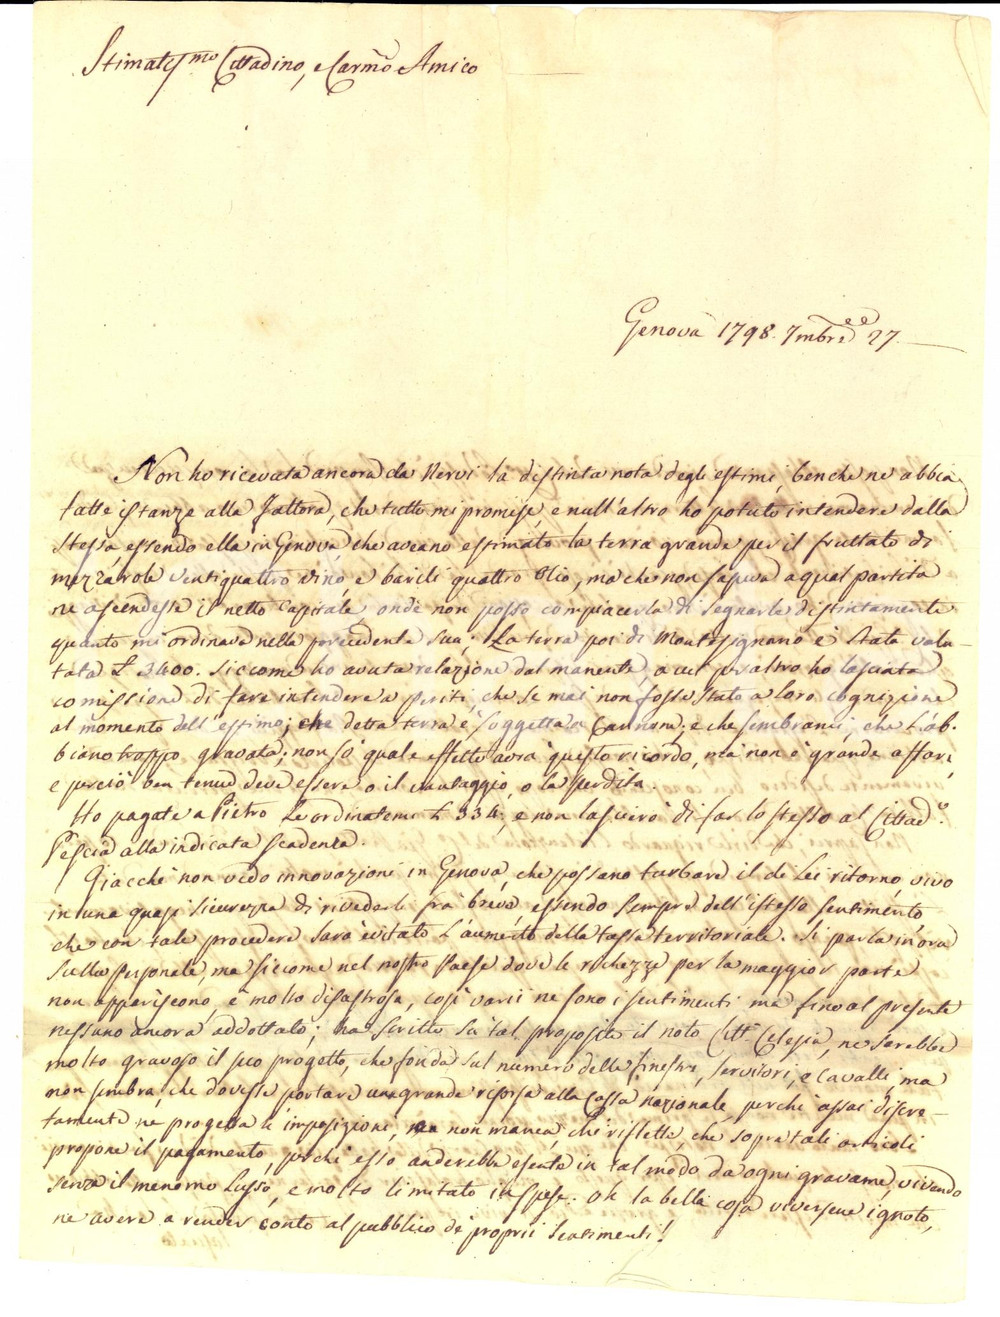 Stimatis.mo Cittadino, e Carmo Amico
Genova 1798. 7mbre 27.
Non ho ricevuta ancora da Nervi la distinta nota degli estimi, benche ne abbia
fatte istanze alla Fattora, che tutto mi promise, e null'altro ho potuto intendere dalla
stessa essendo ella in Genova che aveano estimato la terra grande per il fruttato di
mezzarole ventiquattro vino, e barili quattro olio, ma che non sapeva a qual partita
ne ascendesse il netto Capitale, onde non posso compiacerla di segnarle distintamente
quanto mi ordinava nella precedente sua; La terra poi di Montesignano è stata valu-
tata £ 3400. siccome ho avuta relazione dal manente, a cui per altro ho lasciata
comissione di fare intendere a periti, che se mai non fosse stato a loro cognizione
al momento dell'estimo; che detta terra è soggetta a Cannone; e che sembrami, che l'ab-
biano troppo gravata; non sò quale effetto avrà questo ricordo, ma non è grande affare,
e perciò ben tenue deve essere o il vantaggio, o la perdita.
Ho pagate a Pietro le ordinatemi £ 334, e non lascierò di far lo stesso al Cittad.o
Pescia alla indicata scadenza.
Giacchè non vedo innovazioni in Genova, che possano turbare il di Lei ritorno, vivo
in una quasi sicurezza di rivederli frà breve, essendo sempre dell'istesso sentimento
che con tale procedere sarà evitato l'aumento della tassa territoriale. Si parla in ora
sulla personale, ma siccome nel nostro Paese dove le richezze per la maggior parte
non appariscono, è molto disastrosa, così varii ne sono i sentimenti ma fino al presente
nessuno ancora addottato; ha scritto su tal proposito il noto Citt. Celesia, ne sarebbe
molto gravoso il suo progetto, che fonda sul numero delle finestre, servitori, e cavalli, ma
non sembra, che dovesse portare una grande risorsa alla Cassa nazionale, perchè assai discre-
tamente ne progetta le imposizioni, ma non manca, chi riflette, che sopra tali articoli
propone il pagamento, perchè esso anderebbe esente in tal modo da ogni gravame, vivendo
senza il menomo Lusso, e molto limitato in spese. Oh la bella cosa viversene ignoto,
ne avere a render conto al pubblico de proprii sentimenti!